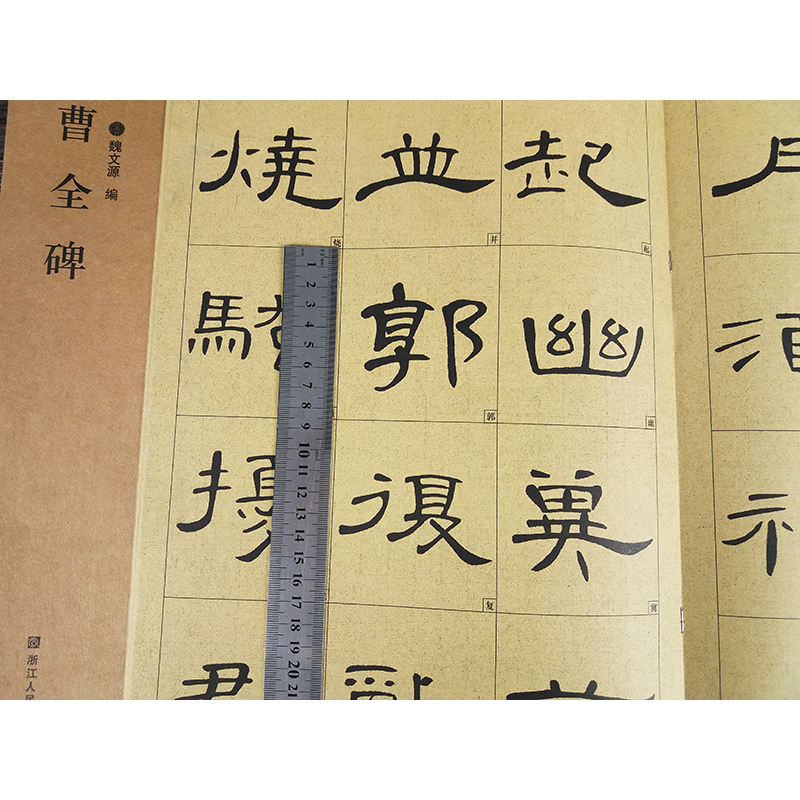 曹全碑
魏文源 编
浙江人民
起幽冀
起
幽
冀
並郭復亂
并
郭
复
燒騷擾君
烧
1 2 3 4 5 6 7 8 9 10 11 12 13 14 15 16 17 18 19 20 21